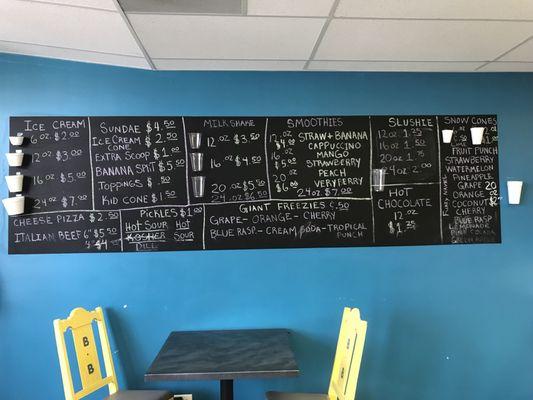 ICE CREAM
6 OZ $2.00
12 OZ $3.00
16 OZ $5.00
24 OZ $7.00
SUNDAE $4.50
ICE CREAM CONE $2.50
EXTRA SCOOP $1.00
BANANA SPLIT $5.50
TOPPINGS $.50
KID CONE $1.50
MILKSHAKE
12 OZ $3.50
16 OZ $4.50
20 OZ $5.50
24 OZ $6.50
SMOOTHIES
12 OZ $4.00
16 OZ $5.00
20 OZ $6.00
24 OZ $7.00
STRAW + BANANA
CAPPUCCINO
MANGO
STRAWBERRY
PEACH
VERYBERRY
SLUSHIE
12 OZ 1.25
16 OZ 1.50
20 OZ 1.75
24 OZ 2.00
HOT
CHOCOLATE
12 OZ
$1.75
SNOW CONES
FRUIT PUNCH
STRAWBERRY
WATERMELON
PINEAPPLE
GRAPE
ORANGE
COCONUT
CHERRY
BLUE RASP
LEMONADE
PINA COLADA
GREEN APPLE
CHEESE PIZZA $2.50
ITALIAN BEEF 6" $5.50
4" $4
PICKLES $1.00
HOT SOUR HOT
KOSHER SOUR
DILL
GIANT FREEZIES $.50
GRAPE - ORANGE - CHERRY
BLUE RASP - CREAM SODA - TROPICAL
PUNCH
B
B